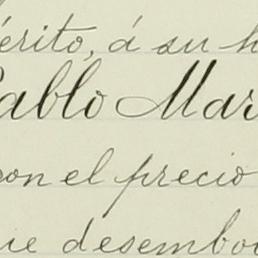 érito, á su h
Pablo Mar
con el precio
ue desembo